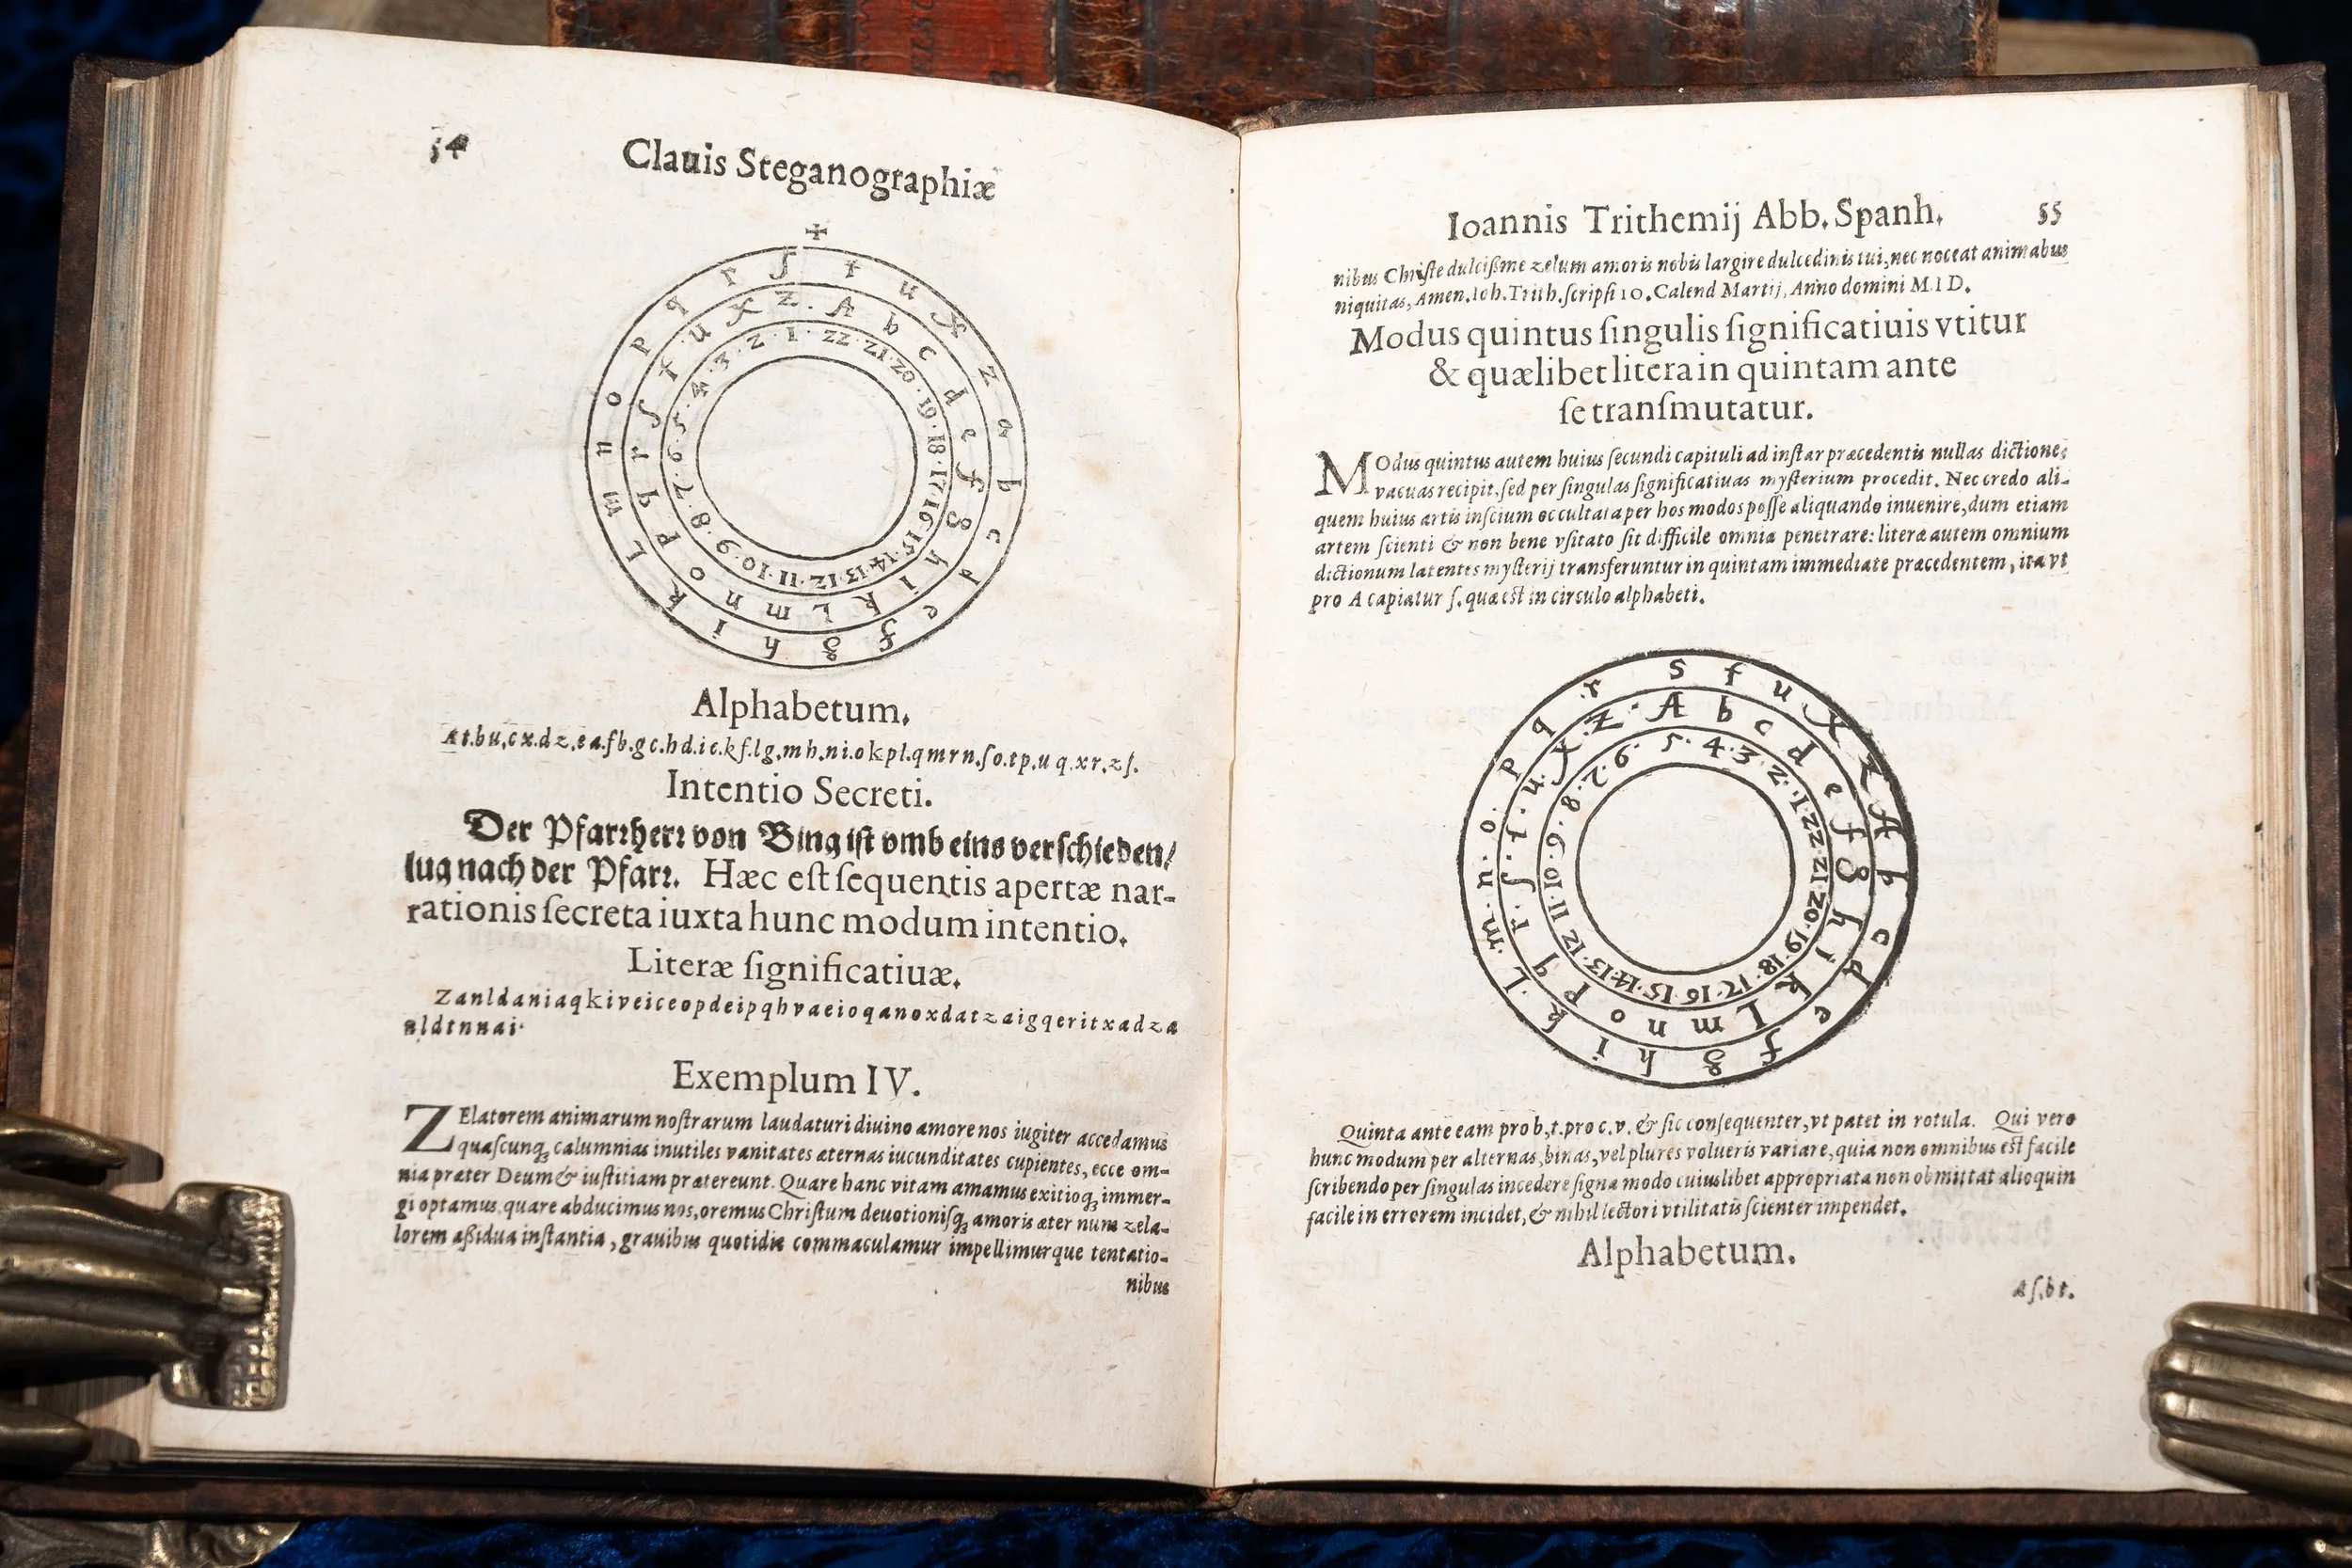 54
Clauis Steganographiæ
✠
ſ t u x z a b c d e f g h i k L m n o p q r
A b c d e f g h i k L m n o p q r ſ t u x z
22 · 21 · 20 · 19 · 18 · 17 · 16 · 15 · 14 · 13 · 12 · 11 · 10 · 9 · 8 · 7 · 6 · 5 · 4 · 3 · 2 · 1
Alphabetum.
At.bu,cx.dz,ea.fb.gc.hd.ie.kf.lg,mh.ni.okpl.qmrn.ſo.tp.uq.xr.zſ.
Intentio Secreti.
Der Pfarrherr von Bing iſt vmb eins verſchieden/
lug nach der Pfarr. Hæc eſt ſequentis apertæ nar-
rationis ſecreta iuxta hunc modum intentio.
Literæ ſignificatiuæ.
zanldaniaqkiveiceopdeipqhvaeioqanoxdatzaigqeritxadza
nldtnnai·
Exemplum IV.
ZElatorem animarum noſtrarum laudaturi diuino amore nos iugiter accedamus
quaſcunq; calumnias inutiles vanitates æternas iucunditates cupientes, ecce om-
nia præter Deum & iuſtitiam prætereunt. Quare hanc vitam amamus exitioq; immer-
gi optamus, quare abducimus nos, oremus Chriſtum deuotioniſq; amoris æter num zela-
lorem aßidua inſtantia, grauibus quotidie commaculamur impellimurque tentatio-
nibus
Ioannis Trithemij Abb. Spanh. 55
nibus Chriſte dulcißme zelum amoris nobis largire dulcedinis tui, nec noceat animabus
niquitas, Amen. Ioh. Trith. ſcripſi 10. Calend Martij, Anno domini M.I D.
Modus quintus ſingulis ſignificatiuis vtitur
& quælibet litera in quintam ante
ſe tranſmutatur.
MOdus quintus autem huius ſecundi capituli ad inſtar præcedentis nullas dictiones
vacuas recipit, ſed per ſingulas ſignificatiuas myſterium procedit. Nec credo ali-
quem huius artis inſcium occultata per hos modos poſſe aliquando inuenire, dum etiam
artem ſcienti & non bene vſitato ſit difficile omnia penetrare: literæ autem omnium
dictionum latentes myſterij transferuntur in quintam immediate præcedentem, ita vt
pro A capiatur ſ. quæ eſt in circulo alphabeti.
s t u x z A b c d e f g h i k L m n o p q r
A b c d e f g h i k L m n o p q r ſ t u x z
5 · 4 · 3 · 2 · 1 · 22 · 21 · 20 · 19 · 18 · 17 · 16 · 15 · 14 · 13 · 12 · 11 · 10 · 9 · 8 · 7 · 6
Quinta ante eam pro b, t. pro c. v. & ſic conſequenter, vt patet in rotula. Qui vero
hunc modum per alternas, binas, vel plures volueris variare, quia non omnibus eſt facile
ſcribendo per ſingulas incedere ſigna modo cuiuslibet appropriata non obmittat alioquin
facile in errorem incidet, & nihil lectori vtilitatis ſcienter impendet.
Alphabetum.
Aſ.bt.